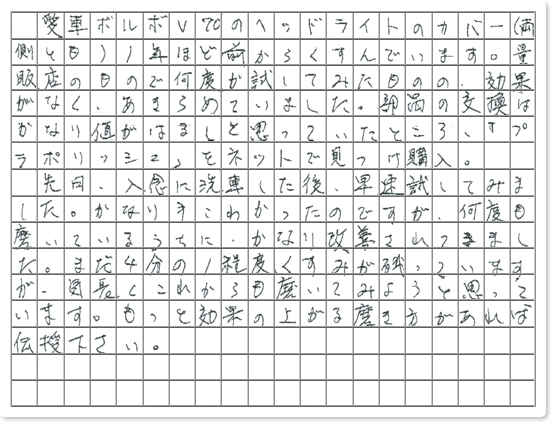 愛車ボルボV70のヘッドライトのカバー(両
側とも)1年ほど前からくすんでいます。量
販店のもので何度が試してみたものの、効果
がなく、あきらめていました。部品の交換は
かなり値がはましと思っていたところ、すプ
ラポリッシュ」をネットで見つけ購入。
先日、入念に洗車した後、早速試してみま
した。かなりきこわかったのですが、何度も
磨いているうちに、かなり改善されてきまし
た。まだ4分の1程度くすみが残っています
が、気長くこれからも磨いてみようと思って
います。もっと効果の上がる磨き方があれば
伝授下さい。